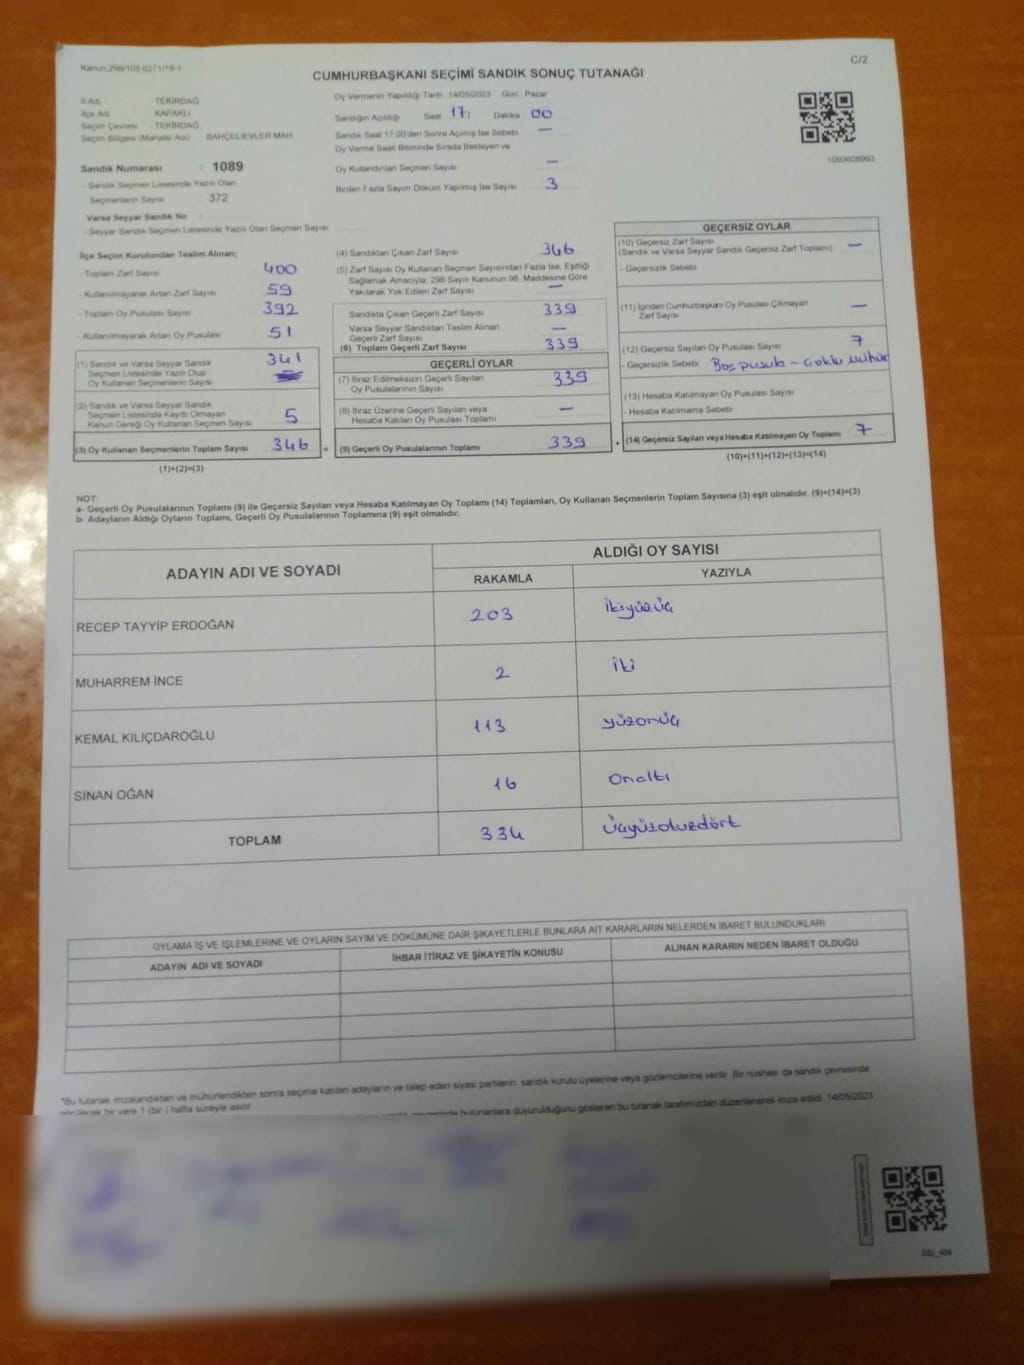 Kanun.298/105.6271/18-1
C/2
CUMHURBAŞKANI SEÇİMİ SANDIK SONUÇ TUTANAĞI
İl Adı TEKİRDAĞ
İlçe Adı KAPAKLI
Seçim Çevresi : TEKİRDAĞ
Seçim Bölgesi (Mahalle Adı) BAHÇELİEVLER MAH
Sandık Numarası : 1089
- Sandık Seçmen Listesinde Yazılı Olan
Seçmenlerin Sayısı : 372
Varsa Seyyar Sandık No :
- Seyyar Sandık Seçmen Listesinde Yazılı Olan Seçmen Sayısı
Oy Vermenin Yapıldığı Tarih 14/05/2023 Gün Pazar
Sandığın Açıldığı Saat 17: Dakika 00
Sandık Saat 17.00'den Sonra Açılmış İse Sebebi —
Oy Verme Saati Bitiminde Sırada Bekleyen ve
Oy Kullandırılan Seçmen Sayısı —
Birden Fazla Sayım Döküm Yapılmış İse Sayısı 3
1093608993
İlçe Seçim Kurulundan Teslim Alınan;
- Toplam Zarf Sayısı 400
- Kullanılmayarak Artan Zarf Sayısı 59
- Toplam Oy Pusulası Sayısı 392
- Kullanılmayarak Artan Oy Pusulası 51
(1) Sandık ve Varsa Seyyar Sandık
Seçmen Listesinde Yazılı Olup
Oy Kullanan Seçmenlerin Sayısı 341
(2) Sandık ve Varsa Seyyar Sandık
Seçmen Listesinde Kayıtlı Olmayan
Kanun Gereği Oy Kullanan Seçmen Sayısı 5
(3) Oy Kullanan Seçmenlerin Toplam Sayısı 346 =
(1)+(2)=(3)
(4) Sandıktan Çıkan Zarf Sayısı 346
(5) Zarf Sayısı Oy Kullanan Seçmen Sayısından Fazla İse, Eşitliği
Sağlamak Amacıyla, 298 Sayılı Kanunun 98. Maddesine Göre
Yakılarak Yok Edilen Zarf Sayısı —
Sandıkta Çıkan Geçerli Zarf Sayısı 339
Varsa Seyyar Sandıktan Teslim Alınan
Geçerli Zarf Sayısı —
(6) Toplam Geçerli Zarf Sayısı 339
GEÇERLİ OYLAR
(7) İtiraz Edilmeksizin Geçerli Sayılan
Oy Pusulalarının Sayısı 339
(8) İtiraz Üzerine Geçerli Sayılan veya
Hesaba Katılan Oy Pusulası Toplamı —
(9) Geçerli Oy Pusulalarının Toplamı 339 +
GEÇERSİZ OYLAR
(10) Geçersiz Zarf Sayısı
(Sandık ve Varsa Seyyar Sandık Geçersiz Zarf Toplamı) —
- Geçersizlik Sebebi
(11) İçinden Cumhurbaşkanı Oy Pusulası Çıkmayan
Zarf Sayısı —
(12) Geçersiz Sayılan Oy Pusulası Sayısı 7
- Geçersizlik Sebebi Boş pusula -
(13) Hesaba Katılmayan Oy Pusulası Sayısı
- Hesaba Katılmama Sebebi
(14) Geçersiz Sayılan veya Hesaba Katılmayan Oy Toplamı 7
(10)+(11)+(12)+(13)=(14)
NOT:
a- Geçerli Oy Pusulalarının Toplamı (9) ile Geçersiz Sayılan veya Hesaba Katılmayan Oy Toplamı (14) Toplamları, Oy Kullanan Seçmenlerin Toplam Sayısına (3) eşit olmalıdır. (9)+(14)=(3)
b- Adayların Aldığı Oyların Toplamı, Geçerli Oy Pusulalarının Toplamına (9) eşit olmalıdır.
ADAYIN ADI VE SOYADI
ALDIĞI OY SAYISI
RAKAMLA YAZIYLA
RECEP TAYYİP ERDOĞAN 203 ikiyüzüç
MUHARREM İNCE 2 iki
KEMAL KILIÇDAROĞLU 113 yüzonüç
SİNAN OĞAN 16 onaltı
TOPLAM 334 üçyüzotuzdört
OYLAMA İŞ VE İŞLEMLERİNE VE OYLARIN SAYIM VE DÖKÜMÜNE DAİR ŞİKAYETLERLE BUNLARA AİT KARARLARIN NELERDEN İBARET BULUNDUKLARI
ADAYIN ADI VE SOYADI İHBAR İTİRAZ VE ŞİKAYETİN KONUSU ALINAN KARARIN NEDEN İBARET OLDUĞU
*Bu tutanak imzalandıktan ve mühürlendikten sonra seçime katılan adayların ve talep eden siyasi partilerin sandık kurulu üyelerine veya gözlemcilerine verilir. Bir nüshası da sandık çevresinde
görülecek bir yere 1 (bir ) hafta süreyle asılır.
bulunanlara duyurulduğunu gösteren bu tutanak tarafımızdan düzenlenerek imza edildi. 14/05/2023